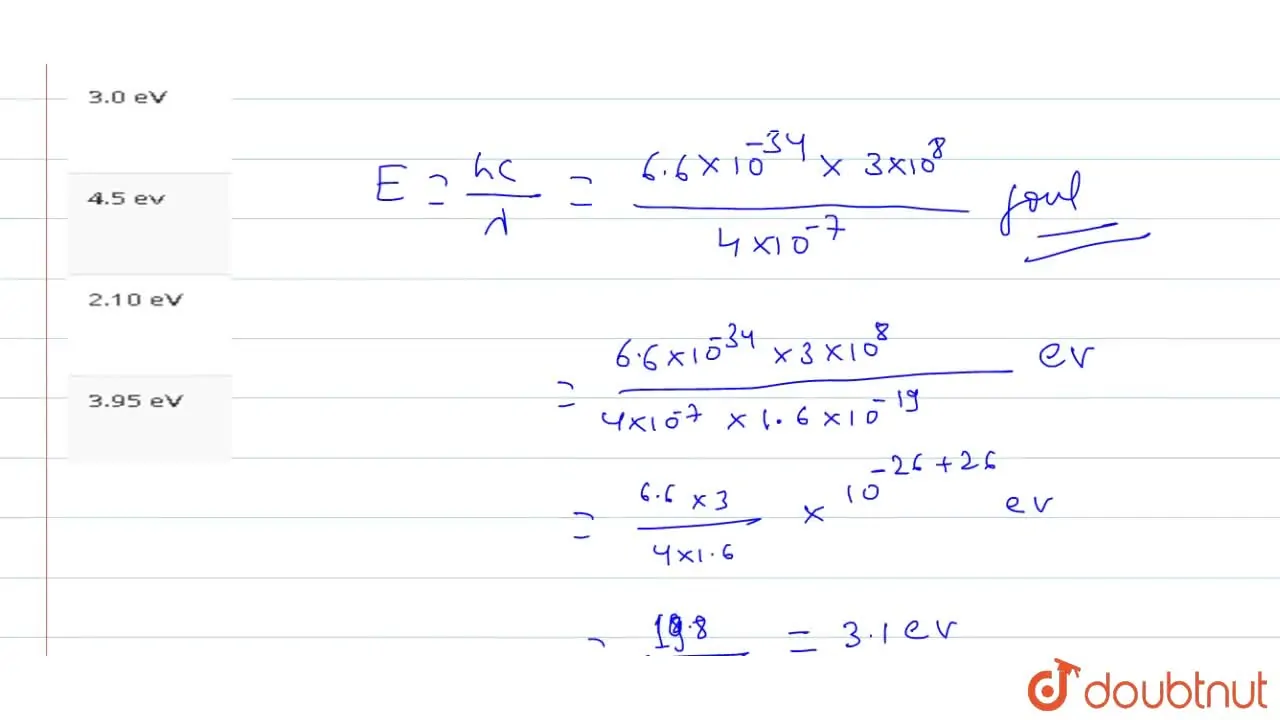 3.0 eV
4.5 ev
2.10 eV
3.95 eV
E = hc/λ = 6.6×10⁻³⁴ × 3×10⁸ / 4×10⁻⁷ Joul
= 6.6×10⁻³⁴ ×3×10⁸ / 4×10⁻⁷ × 1.6×10⁻¹⁹ ev
= 6.6 ×3 / 4×1.6 × 10⁻²⁶⁺²⁶ ev
= 3.1 ev
doubtnut